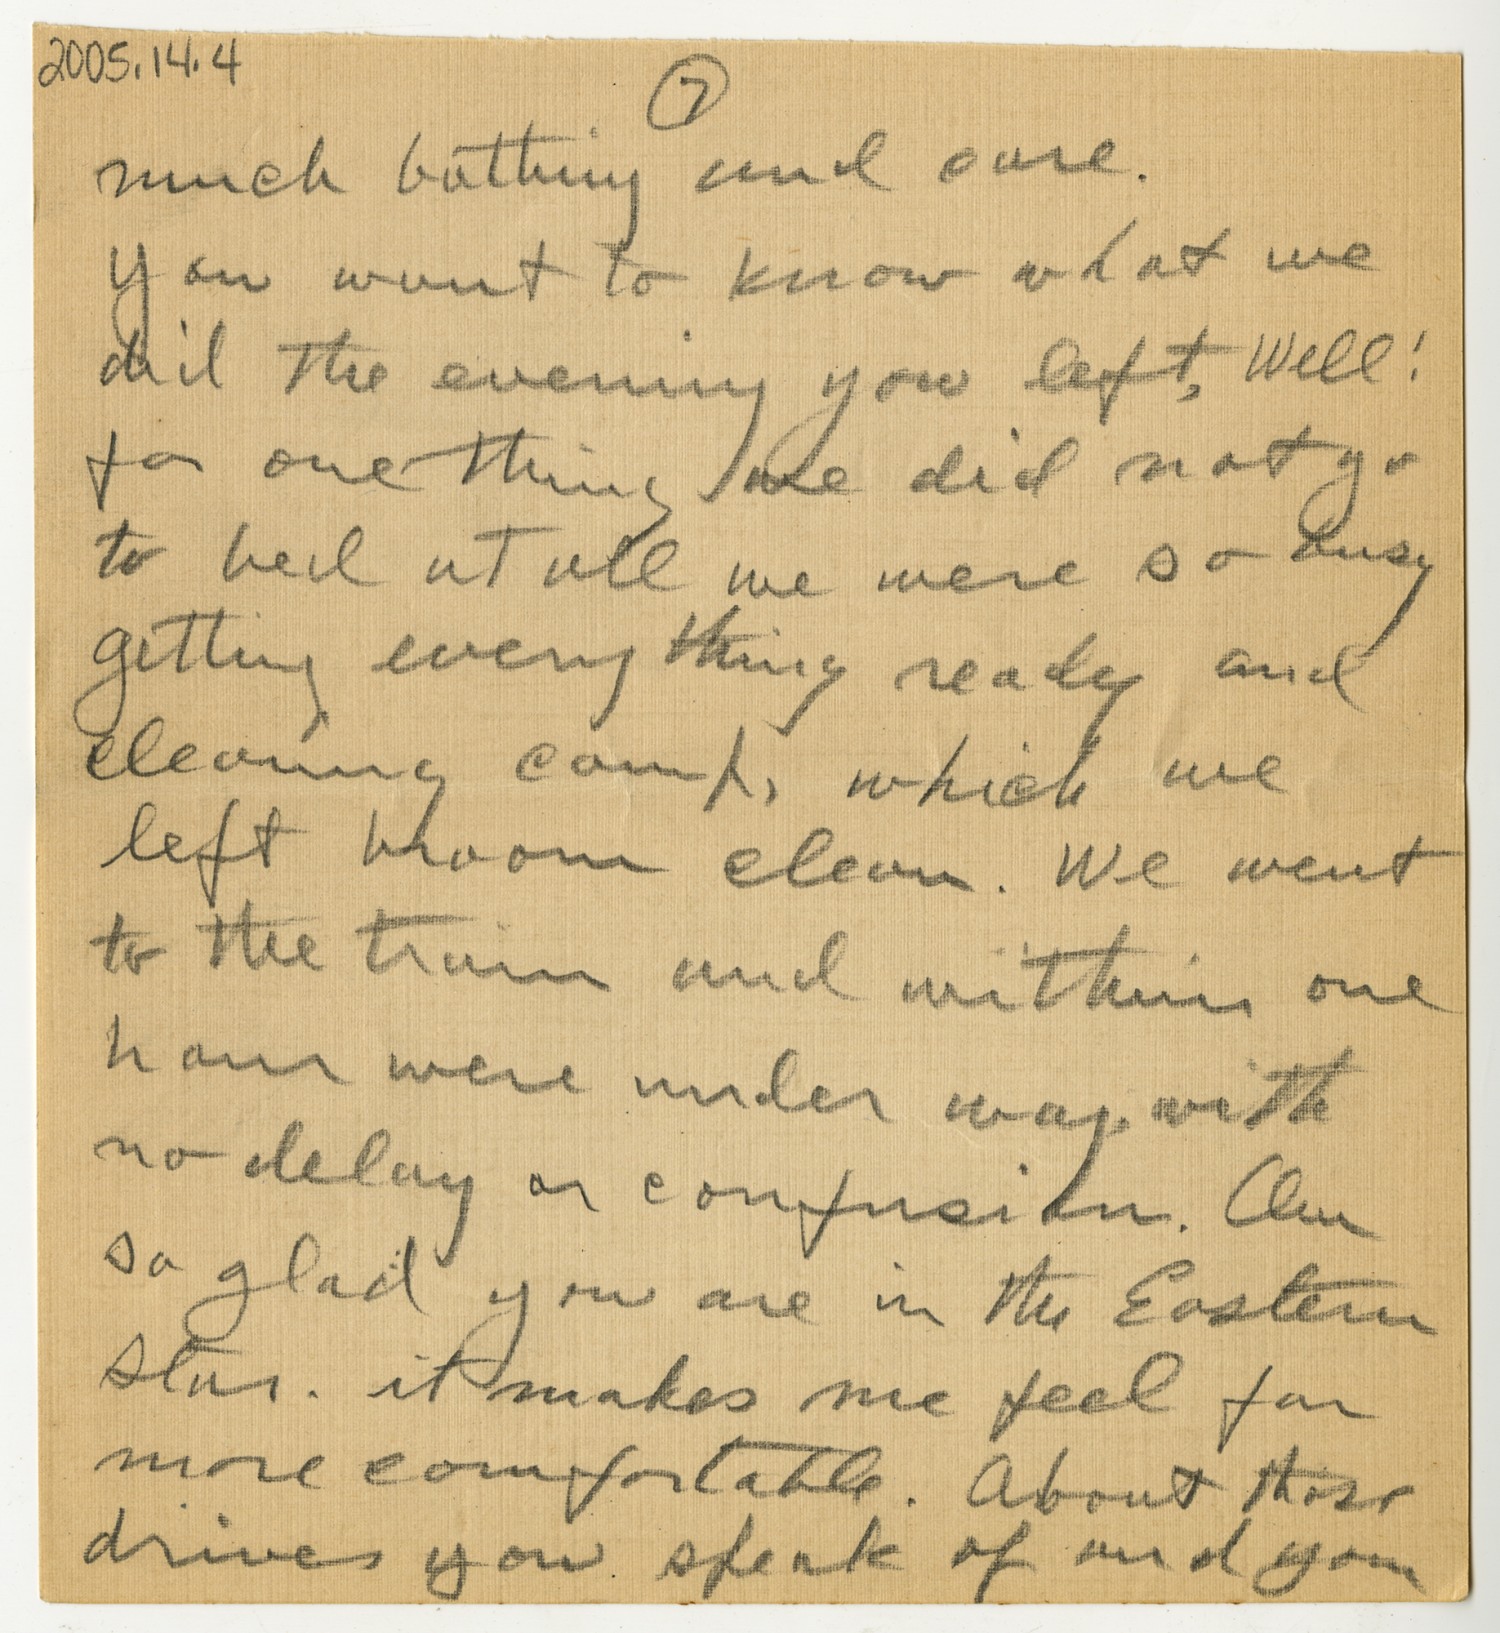 2005.14.4
7
much bathing and care.
you want to know what we
did the evening you left, Well!
for one thing we did not go
to bed at all we were so busy
getting every thing ready and
cleaning camp, which we
left broom clean. We went
to the train and within one
hour were under way, with
no delay or confusion. Am
so glad you are in the Eastern
Star. it makes me feel far
more comfortable. About those
drives you speak of and you